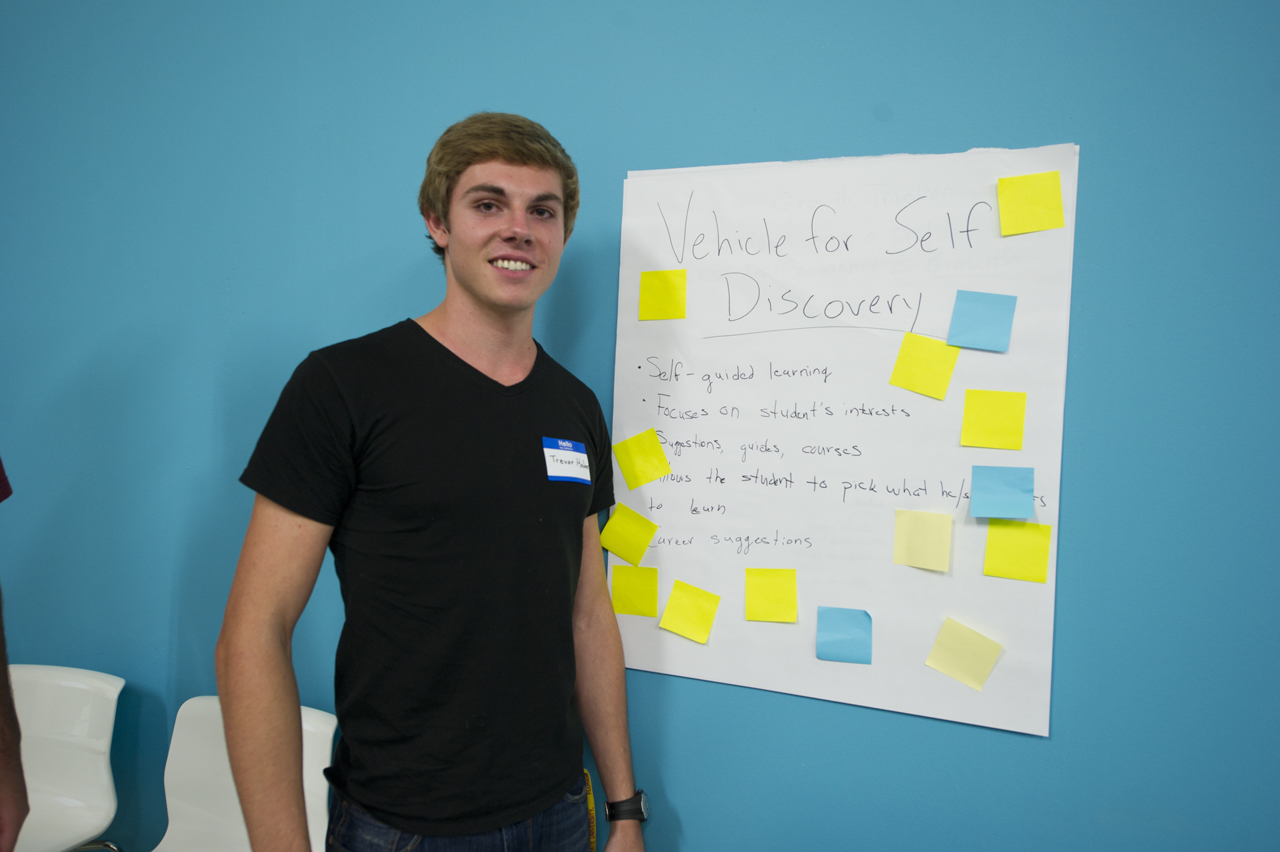 Hello
Trevor
Vehicle for Self
Discovery
• Self-guided learning
• Focuses on student's interests
Suggestions, guides, courses
the student to pick what he/s
to learn
Career suggestions